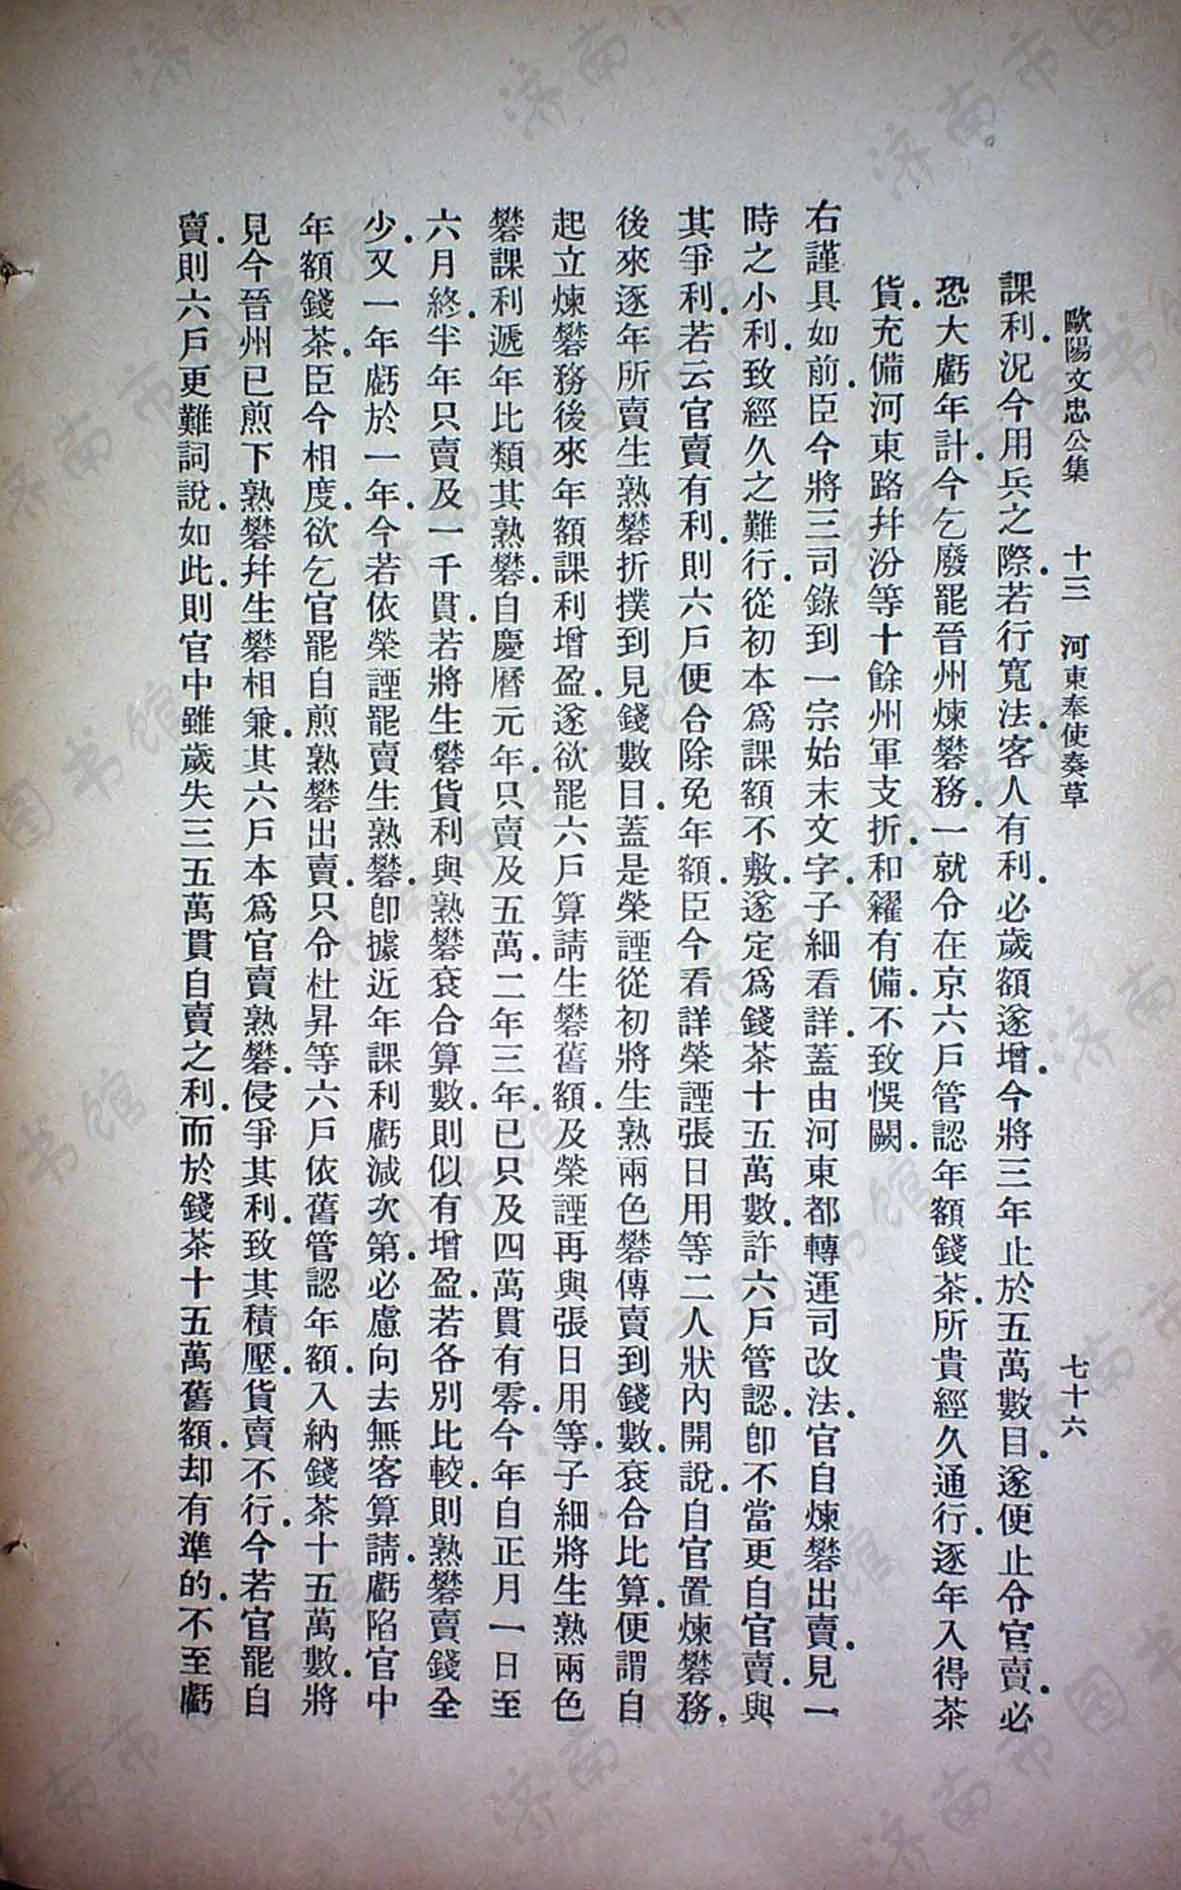 歐陽文忠公集　十三　河東奉使奏草　七十六
課利．況今用兵之際．若行寬法．客人有利．必歲額遂增．今將三年止於五萬數目．遂便止令官賣．必
恐大虧年計．今乞廢罷晉州煉礬務．一就令在京六戶管認年額錢茶．所貴經久通行．逐年入得茶
貨．充備河東路幷汾等十餘州軍支折．和糴有備．不致悞闕．
右謹具如前．臣今將三司錄到一宗始末文字．子細看詳．蓋由河東都轉運司改法．官自煉礬出賣．見一
時之小利．致經久之難行．從初本爲課額不敷．遂定爲錢茶十五萬數．許六戶管認．卽不當更自官賣．與
其爭利．若云官賣有利．則六戶便合除免年額．臣今看詳榮諲張日用等二人狀內開說．自官置煉礬務．
後來逐年所賣生熟礬折撲到見錢數目．蓋是榮諲從初將生熟兩色礬傳賣到錢數．袞合比算．便謂自
起立煉礬務後來年額課利增盈．遂欲罷六戶算請生礬舊額．及榮諲再與張日用等．子細將生熟兩色
礬課利遞年比類．其熟礬．自慶曆元年．只賣及五萬．二年三年．已只及四萬貫有零．今年自正月一日至
六月終．半年只賣及一千貫．若將生礬貨利與熟礬袞合算數．則似有增盈．若各別比較．則熟礬賣錢全
少．又一年虧於一年．今若依榮諲罷賣生熟礬．卽據近年課利虧減次第．必慮向去無客算請．虧陷官中
年額錢茶．臣今相度．欲乞官罷自煎熟礬出賣．只令杜昇等六戶依舊管認年額．入納錢茶十五萬數．將
見今晉州已煎下熟礬幷生礬相兼．其六戶本爲官賣熟礬．侵爭其利．致其積壓．貨賣不行．今若官罷自
賣．則六戶更難詞說．如此．則官中雖歲失三五萬貫自賣之利．而於錢茶十五萬舊額．却有準的．不至虧